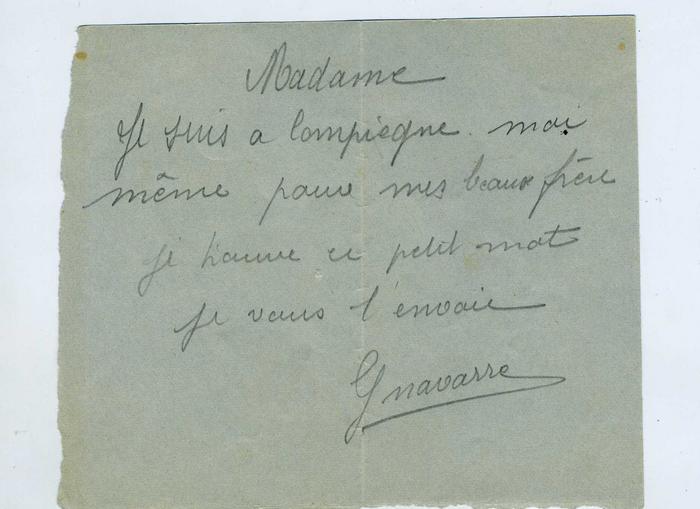 Madame
Je suis a Compiegne moi
même pour mes beaux frère
je trouve ce petit mot
je vous l'envoie
G navarre